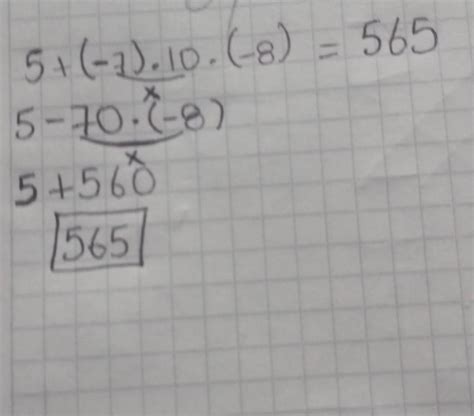 5+(-7).10.(-8) = 565
x
5-70.(-8)
x
5+560
565